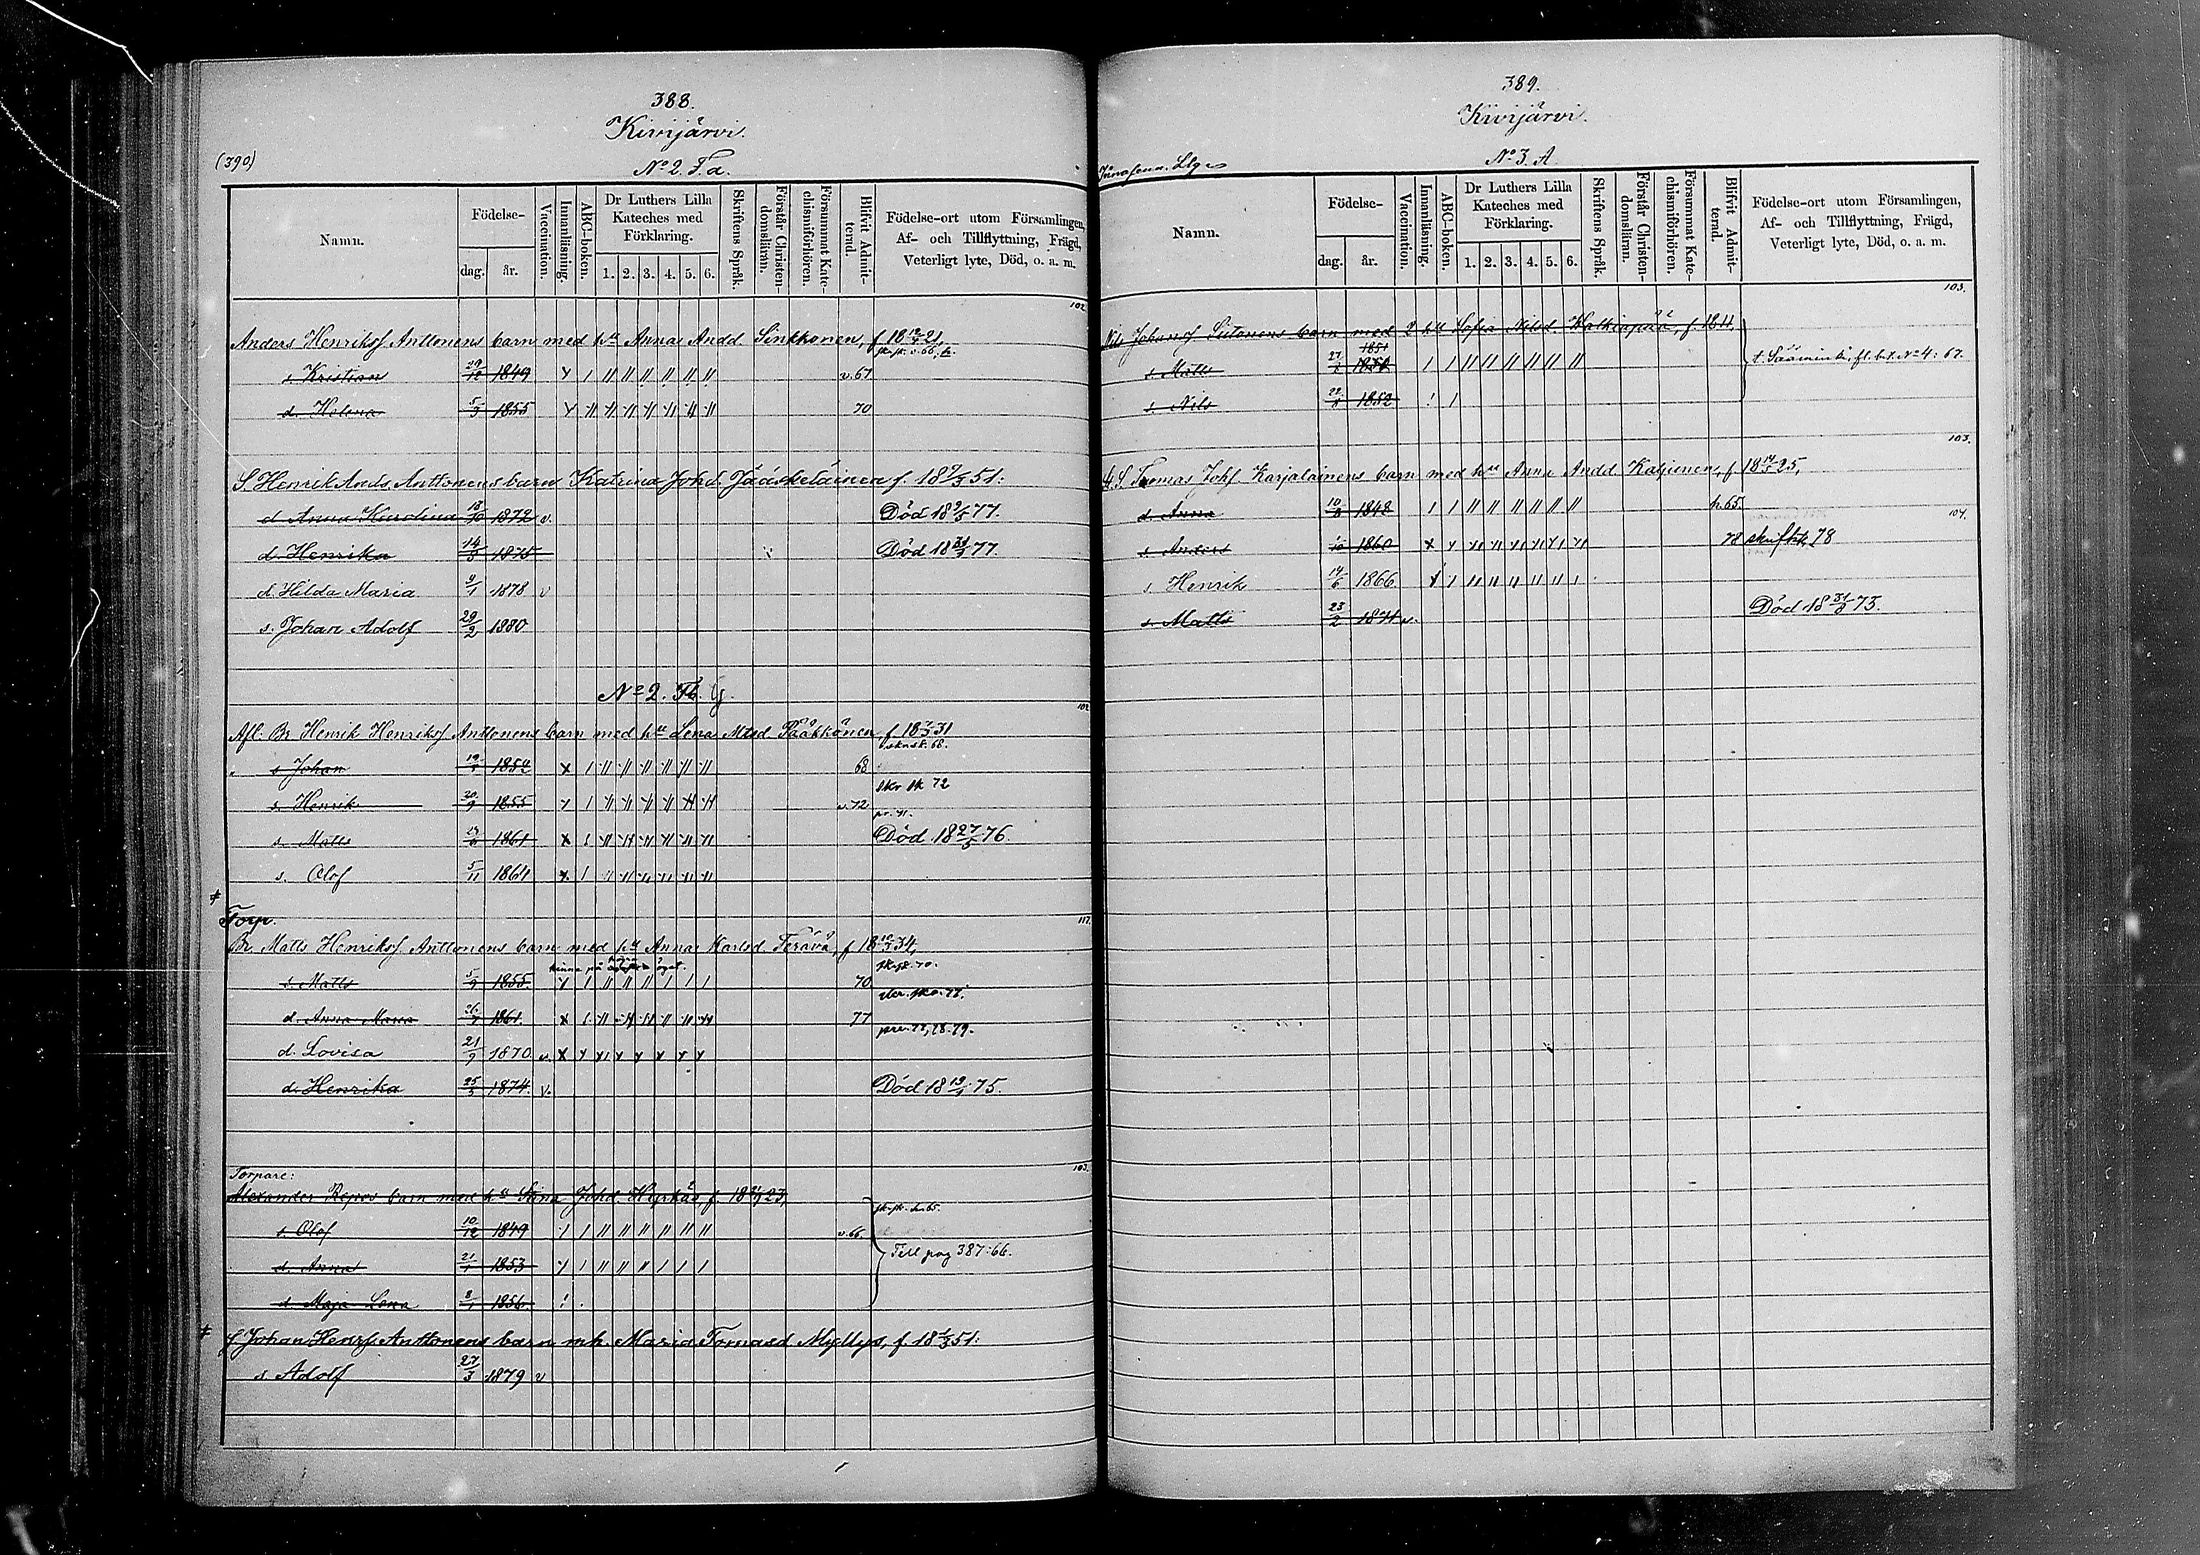 388.
Kivijärvi.
(390)
No 2. F.a.
Namn.
Födelse-
dag.
år.
Vaccination.
Innanläsning.
ABC-boken.
Dr Luthers Lilla
Kateches med
Förklaring.
1. 2. 3. 4. 5. 6.
Skriftens Språk.
Förstår Christen-
domsläran.
Försummat Kate-
chismiförhören.
Blifvit Admit-
terad.
Födelse-ort utom Församlingen,
Af- och Tillflyttning, Frägd,
Veterligt lyte, Död, o. a. m.
102
Anders Henriksf Anttonens barn med hu Anna Andd Sinkkonen, f 18 21,
s. Kristian 29/12 1849 v. 67
d. Helena 5/9 1855 70
S. Henrik Ands. Anttonens barn Katrina Johd. Jääskeläinen f. 18 51:
d Anna Karolina 18/10 1872 v. Död 18 77.
d. Henrika 14/3 1875 Död 18 77.
d. Hilda Maria 9/1 1878 v
s. Johan Adolf 29/2 1880
No 2. Fb. G.
102
Afl. Br Henrik Henriksf Anttonens barn med hu Lena Mtsd Pääkkönen, f 18 31
s Johan 1852 68
s. Henrik 20/9 1855 v. 72 skr sk 72
s. Matts 1861 Död 18 27/5 76.
s. Olof 5/11 1864
Torp.
117.
Br. Matts Henriksf Anttonens barn med hu Anna Karlsd Terävä, f 18 34,
s. Matts 5/9 1855 70
d. Anna Maria 1861. 77
d. Lovisa 21/9 1870 v.
d. Henrika 25/5 1874. v. Död 18 19/1 75.
103.
Torpare:
Alexander Repos barn med hu Johd. Hyrkäs, f. 18 23,
s. Olof 10/12 1849 v. 66.
d. Anna 21/1 1853 Till pag 387:66.
d Maja Lena 8/1 1856
Johan Henrsf Anttonens barn mh. Maria Tomasd Myllys, f. 18 51:
s. Adolf 27/3 1879 v
389.
Kivijärvi.
No 3. A
Namn.
Födelse-
dag.
år.
Vaccination.
Innanläsning.
ABC-boken.
Dr Luthers Lilla
Kateches med
Förklaring.
1. 2. 3. 4. 5. 6.
Skriftens Språk.
Förstår Christen-
domsläran.
Försummat Kate-
chismiförhören.
Blifvit Admit-
terad.
Födelse-ort utom Församlingen,
Af- och Tillflyttning, Frägd,
Veterligt lyte, Död, o. a. m.
103.
Nils Johansf Siitonens barn med 2 hu Sofia Nilsd. f. 1811.
1851
s. Matts 27/2 t. Sääminki, fl. b.t. No 4: 67.
s. Nils 1852
103.
Tomas Johsf Karjalainens barn med hu Anna Andd f 18 25,
d. Anna 10/8 1848 h. 65.
104.
s. Anders 1860 78 78
s. Henrik 14/6 1866
s. Matts 23/2 1871 v. Död 18 73.